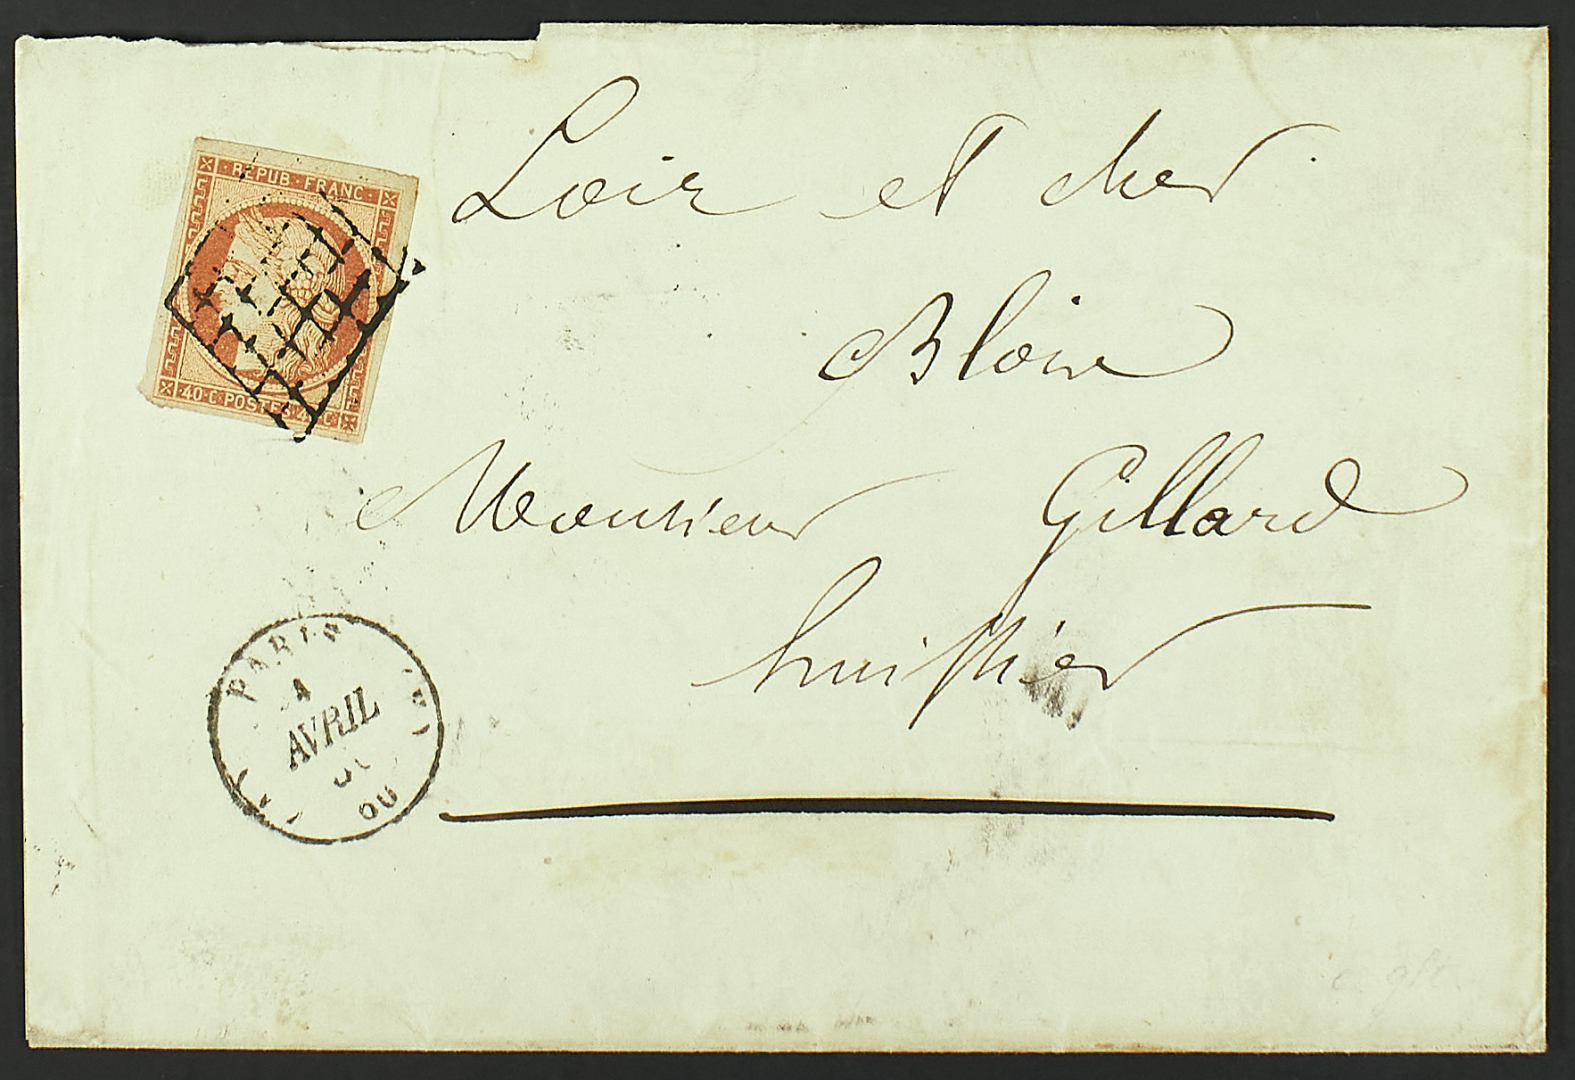 Loir et cher
Blois
Monsieur Gillard
huissier
REPUB·FRANC·
40·C POSTES 4 C
PARIS
AVRIL
60